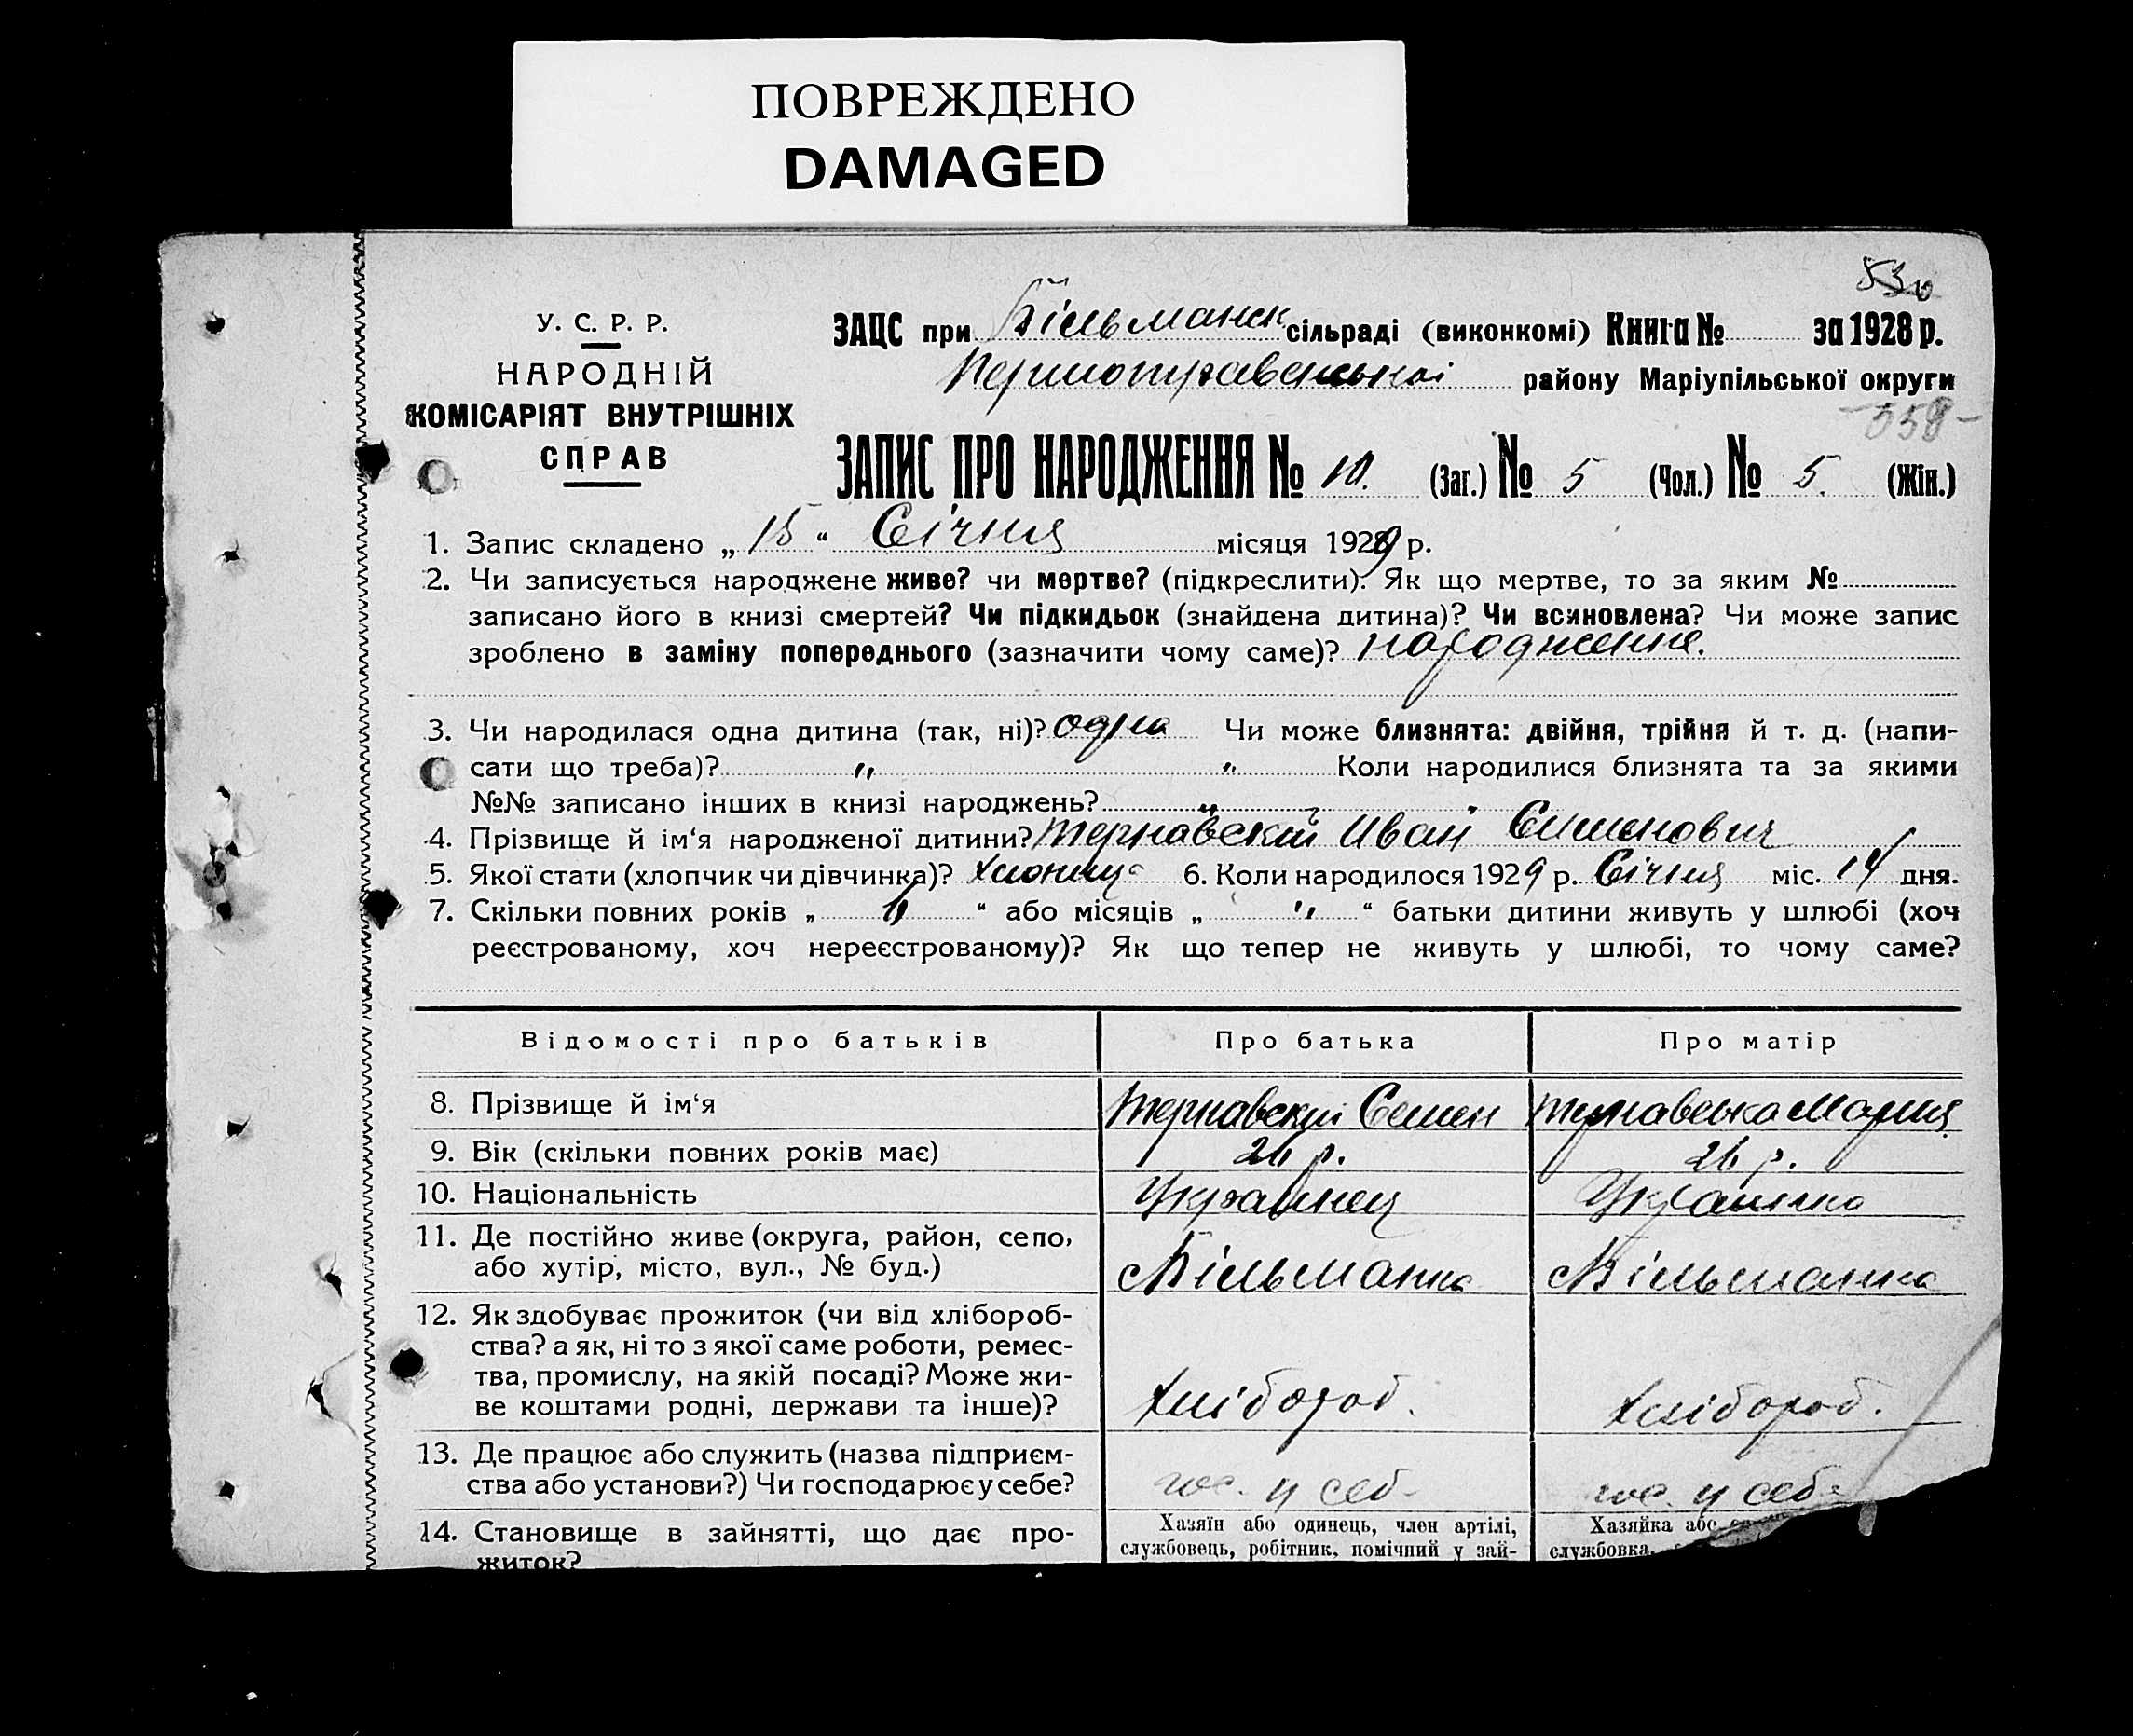 ПОВРЕЖДЕНО
DAMAGED
У. С. Р. Р.
НАРОДНІЙ
КОМІСАРІЯТ ВНУТРІШНІХ
СПРАВ
ЗАЦС при Більманск сільраді (виконкомі) Книга № за 1928 р.
району Маріупільської округи
ЗАПИС ПРО НАРОДЖЕННЯ № 10. (Заг.) № 5 (Чол.) № 5. (Жін.)
1. Запис складено „ 15 “ Січня місяця 1929 р.
2. Чи записується народжене живе? чи мертве? (підкреслити). Як що мертве, то за яким №
записано його в книзі смертей? Чи підкидьок (знайдена дитина)? Чи всиновлена? Чи може запис
зроблено в заміну попереднього (зазначити чому саме)? народження.
3. Чи народилася одна дитина (так, ні)? одна Чи може близнята: двійня, трійня й т. д. (напи-
сати що треба)? „ „ Коли народилися близнята та за якими
№№ записано інших в книзі народжень? „
4. Прізвище й ім‘я народженої дитини? Тернавский Иван Семенович
5. Якої стати (хлопчик чи дівчинка)? 6. Коли народилося 1929 р. Січня міс. 14 дня.
7. Скільки повних років „ „ “ або місяців „ „ “ батьки дитини живуть у шлюбі (хоч
реєстрованому, хоч нереєстрованому)? Як що тепер не живуть у шлюбі, то чому саме?
Відомості про батьків Про батька Про матір
8. Прізвище й ім‘я Тернавский Семен Тернавська Мария
9. Вік (скільки повних років має) 26 р. 26 р.
10. Національність Украинец Украінка
11. Де постійно живе (округа, район, село,
або хутір, місто, вул., № буд.) Більманка Більманка
12. Як здобуває прожиток (чи від хлібороб-
ства? а як, ні то з якої саме роботи, ремес-
тва, промислу, на якій посаді? Може жи-
ве коштами родні, держави та інше)? Хлібороб. Хлібороб.
13. Де працює або служить (назва підприєм-
ства або установи?) Чи господарює у себе? гос. у себ. гос. у себ.
14. Становище в зайнятті, що дає про- Хазяїн або одинець, член артілі, Хазяйка або
житок? службовець, робітник, помічний у зай- службовка,